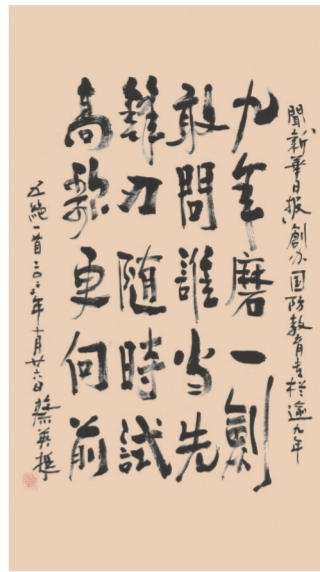 聞「新華日报」創办国防教育专栏逾九年
九年磨一劍
敢問誰当先
刃随時試
高歌更何前
五絶一首二〇一六年十月廿六日 蔡英挺